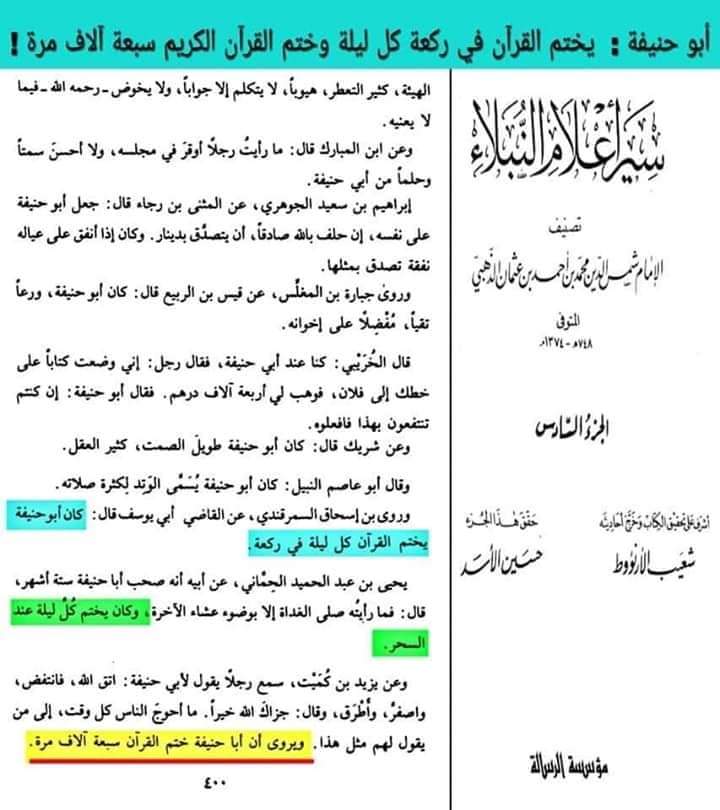 أبو حنيفة : يختم القرآن في ركعة كل ليلة وختم القرآن الكريم سبعة آلاف مرة !
سير أعلام النبلاء
تصنيف
الإمام شمس الدين محمد بن أحمد بن عثمان الذهبي
المتوفى
٧٤٨هـ - ١٣٧٤م
الجزء السادس
أشرف على تحقيق الكتاب وخرج أحاديثه
شعيب الأرنؤوط
حقق هذا الجزء
حسين الأسد
مؤسسة الرسالة
الهيئة، كثير التعطر، هيوباً، لا يتكلم إلا جواباً، ولا يخوض -رحمه الله- فيما
لا يعنيه.
وعن ابن المبارك قال: ما رأيتُ رجلًا أوقرَ في مجلسه، ولا أحسنَ سمتاً
وحلماً من أبي حنيفة.
إبراهيم بن سعيد الجوهري، عن المثنى بن رجاء قال: جعل أبو حنيفة
على نفسه، إن حلف بالله صادقاً، أن يتصدَّق بدينار. وكان إذا أنفق على عياله
نفقة تصدق بمثلها.
وروىٰ جبارة بن المغلِّس، عن قيس بن الربيع قال: كان أبو حنيفة، ورعاً
تقياً، مُفْضِلًا على إخوانه.
قال الخُرَيْبي: كنا عند أبي حنيفة، فقال رجل: إني وضعت كتاباً على
خطك إلى فلان، فوهب لي أربعة آلاف درهم. فقال أبو حنيفة: إن كنتم
تنتفعون بهذا فافعلوه.
وعن شريك قال: كان أبو حنيفة طويلَ الصمت، كثير العقل.
وقال أبو عاصم النبيل: كان أبو حنيفة يُسَمَّى الوَتِد لِكثرة صلاته.
وروى بن إسحاق السمرقندي، عن القاضي أبي يوسف قال: كان أبو حنيفة
يختم القرآن كل ليلة في ركعة.
يحيى بن عبد الحميد الحِمَّاني، عن أبيه أنه صحب أبا حنيفة ستة أشهر،
قال: فما رأيتُه صلى الغداة إلا بوضوء عشاء الآخرة، وكان يختم كُلَّ ليلة عند
السحر.
وعن يزيد بن كُمَيْت، سمع رجلًا يقول لأبي حنيفة: اتق الله، فانتفض،
واصفرَّ، وأَطْرَق، وقال: جزاكَ الله خيراً. ما أحوجَ الناس كل وقت، إلى من
يقول لهم مثل هذا. ويروى أن أبا حنيفة ختم القرآن سبعة آلاف مرة.
٤٠٠